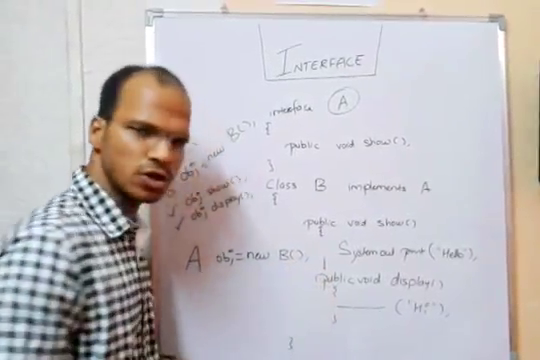 INTERFACE
interface A
{
public void show();
}
Class B implements A
{
public void show()
{
System out print ("Hello");
}
public void display()
{
("Hi");
}
}
obj = new B();
obj show();
obj display();
A obj = new B();